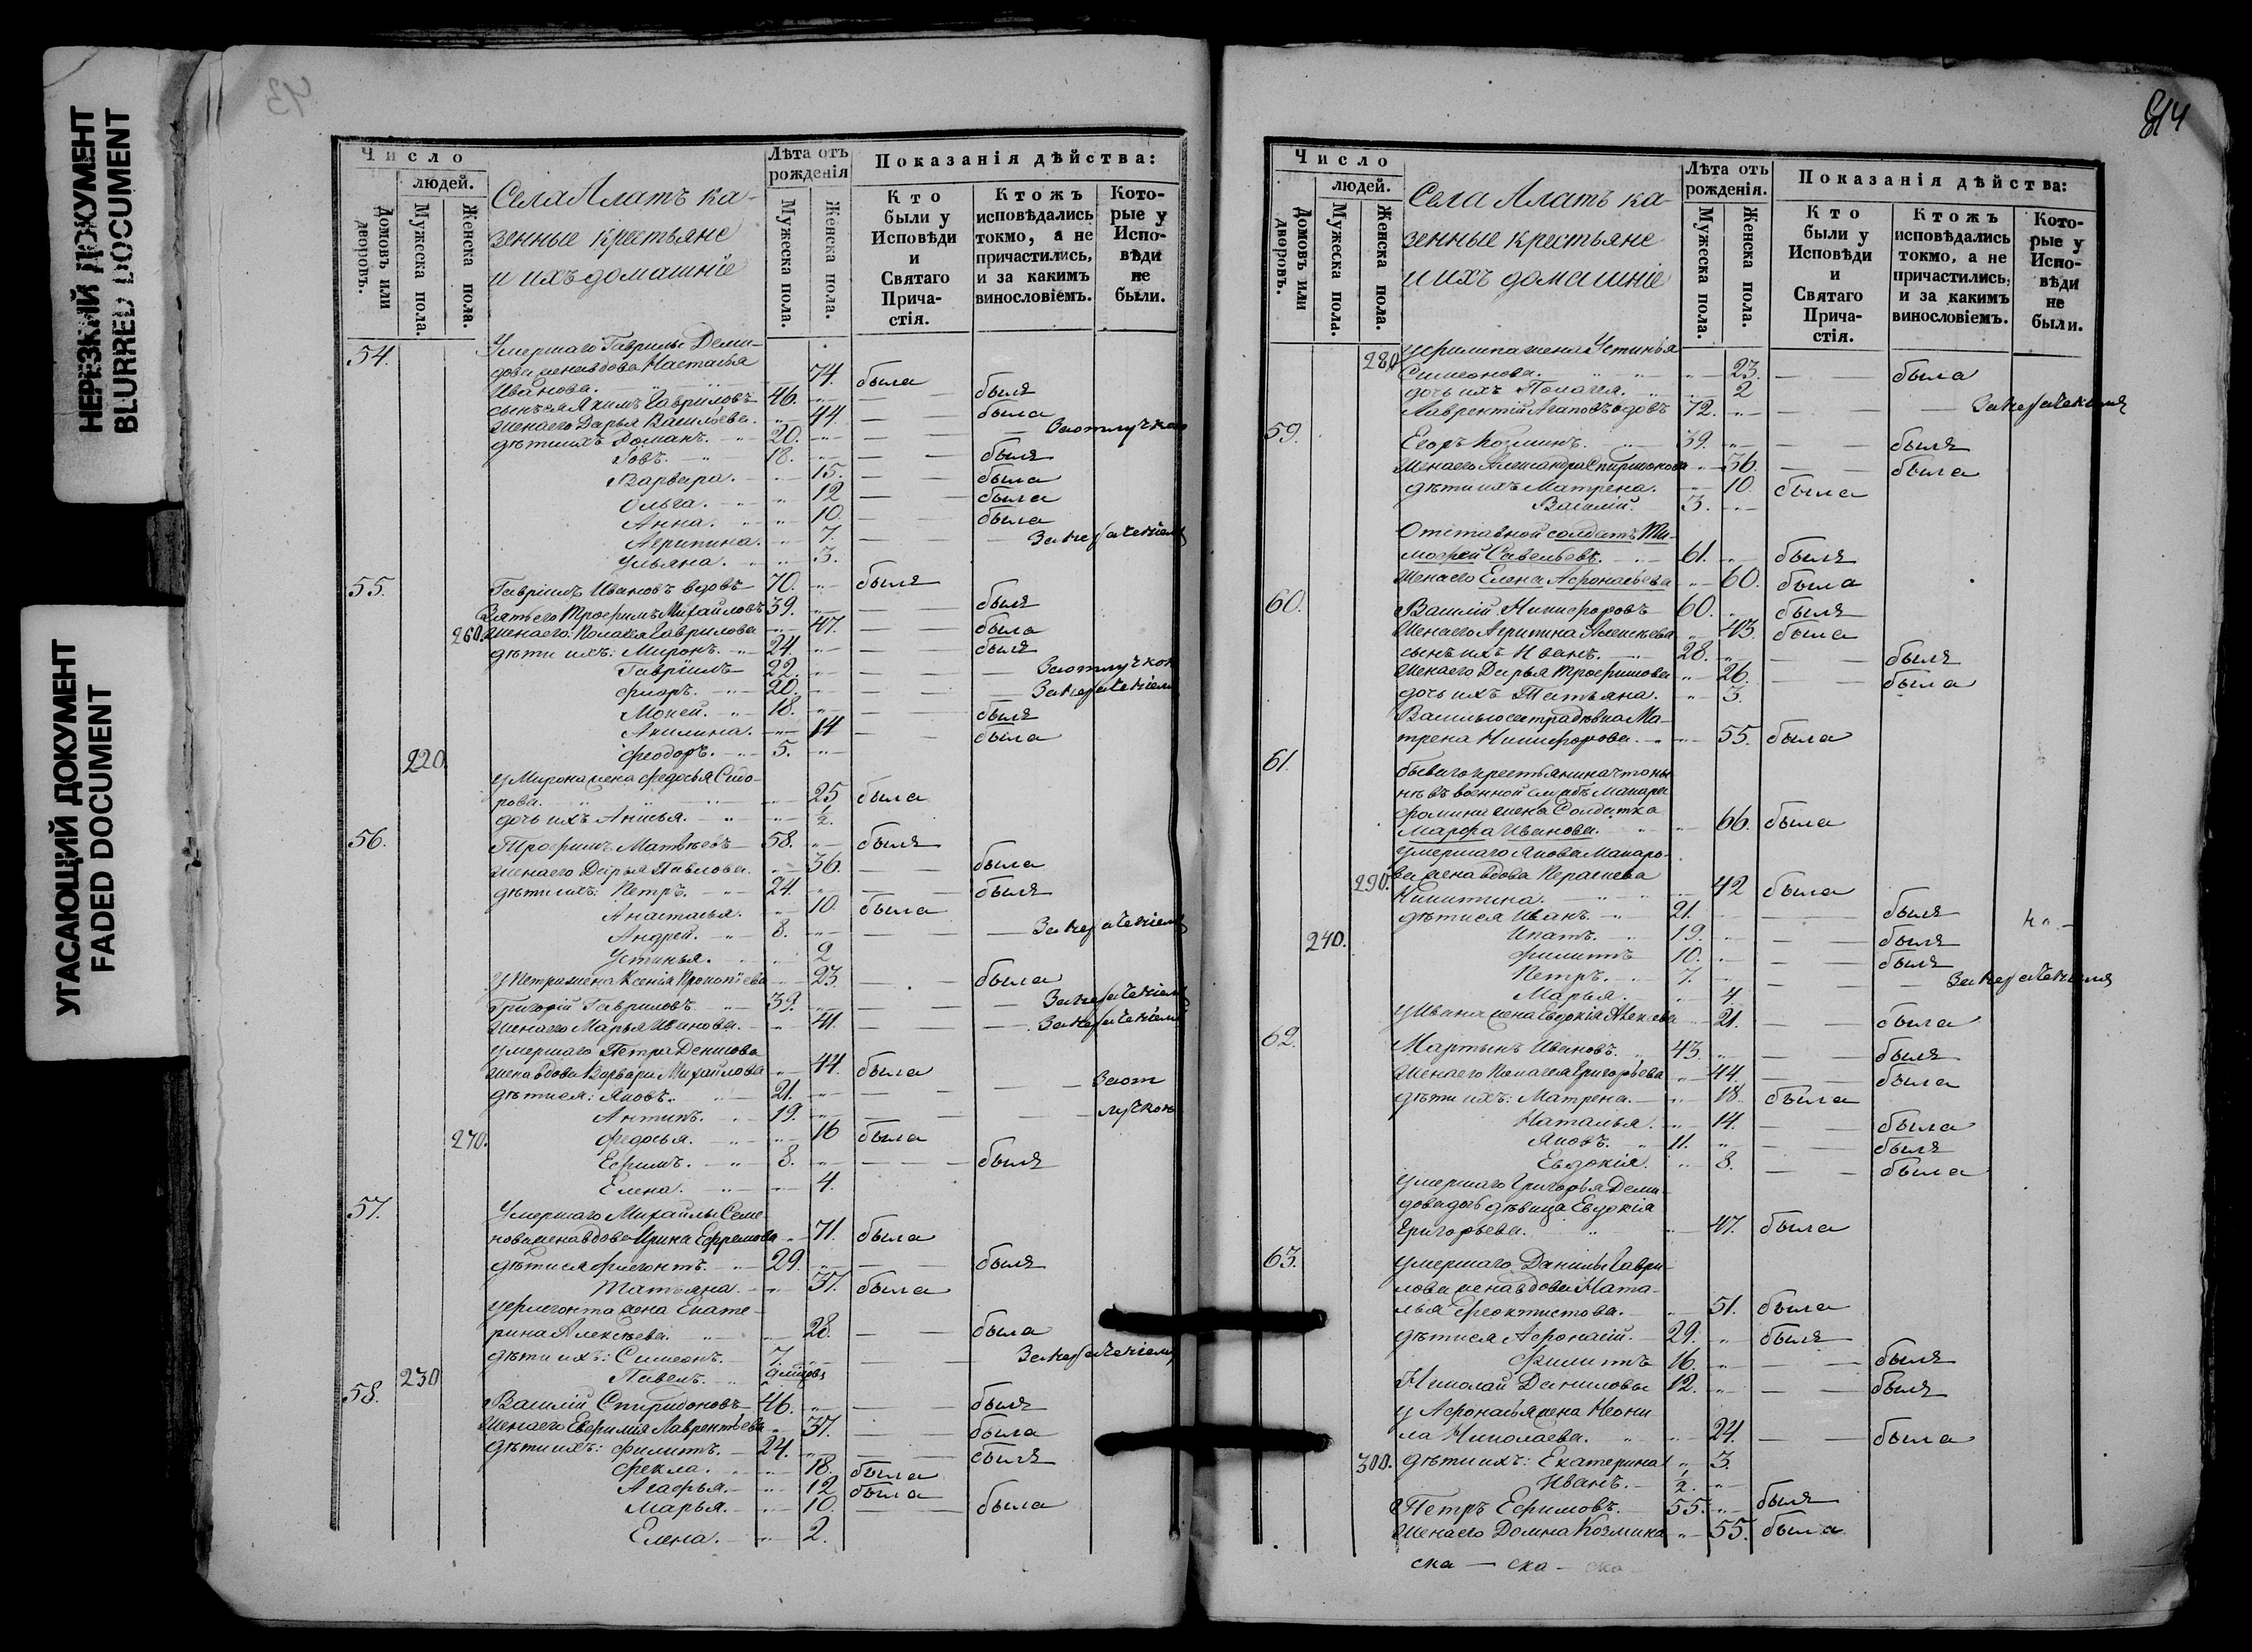 НЕРЕЗКИЙ ДОКУМЕНТ
BLURRED DOCUMENT
УГАСАЮЩИЙ ДОКУМЕНТ
FADED DOCUMENT
43
Число
людей.
Домовъ или дворовъ.
Мужеска пола.
Женска пола.
Села Алатъ ка-
зенные крестьяне
и ихъ домашніе
Лѣта отъ рожденія
Мужеска пола.
Женска пола.
Показанія дѣйства:
Кто были у Исповѣди и Святаго Прича-стія.
Ктожъ исповѣдались токмо, а не причастились, и за какимъ винословіемъ.
Кото-рые у Испо-вѣди не были.
54. Умершаго Гаврилы Деми-
дова жена вдова Настасья
Иванова. 74. была
сынъ ея Акимъ Гавриловъ 46. былъ
жена его Дарья Васильева. 44. была
дѣти ихъ Романъ. 20. За отлучкою
Іовъ. 18. былъ
Варвара. 15. была
Ольга. 12 была
Анна. 10. была
Агрипина. 7. За нерачениемъ
Ульяна. 3.
55. Гавріилъ Ивановъ вдовъ 70. былъ
Зять его Трофимъ Михайловъ 39. былъ
260. жена его: Пелагея Гаврилова 47. была
дѣти ихъ: Миронъ. 24. былъ
Гавріилъ 22. За отлучкою
Флоръ. 20. За нерачениемъ
Мокей. 18. былъ
Акилина. 14 была
220. Феодоръ. 5.
у Мирона жена Федосья Сидо-
рова. 25 была
дочь ихъ Анисья. 1/2.
56. Трофимъ Матвѣевъ 58. былъ
жена его Дарья Павлова. 36. была
дѣти ихъ: Петръ. 24. былъ
Анастасья. 10. была
Андрей. 8. За нерачениемъ
Устинья. 2
у Петра жена Ксенія Прокопіева 23. была
Григорій Гавриловъ 39. За нерачениемъ
жена его Марья Иванова. 41. За нерачениемъ
умершаго Петра Денисова
жена вдова Варвара Михайлова 44. была
дѣти ея: Яковъ. 21. За от
Антипъ. 19. лучкою
270. Федосья. 16 была
Ефимъ. 8. былъ
Елена. 4.
57. Умершаго Михайлы Семе-
нова жена вдова Ирина Ефремова 71. была
дѣти ея Флегонтъ. 29. былъ
Татьяна. 37. была
у Флегонта жена Екате-
рина Алексѣева. 28. была
дѣти ихъ: Симеонъ. 7. За нерачениемъ
230 Павелъ.
58. Василій Спиридоновъ 46. былъ
жена его Евфимія Лаврентьева 37. была
дѣти ихъ: Филиппъ. 24. былъ
Фекла. 18. была
Агафья. 12 была
Марья. 10. была
Елена. 2.
Число
людей.
Домовъ или дворовъ.
Мужеска пола.
Женска пола.
Села Алатъ ка-
зенные крестьяне
и ихъ домашніе
Лѣта отъ рожденія.
Мужеска пола.
Женска пола.
Показанія дѣйства:
Кто были у Исповѣди и Святаго Прича-стія.
Ктожъ исповѣдались токмо, а не причастились, и за какимъ винословіемъ.
Кото-рые у Испо-вѣди не были.
280 у Филипа жена Устинья
Симеонова. 23. была
дочь ихъ Пелагея. 2
Лаврентій Агаповъ вдовъ 72. За нерачениемъ
59. Егоръ Козминъ. 39. былъ
жена его Александра Спиридонова 36. была
дѣти ихъ Матрена. 10. была
Василій. 3.
Отставной солдатъ Ти-
мофей Савельевъ. 61. былъ
жена его Елена Афонасьева 60. была
60. Василій Никифоровъ 60. былъ
жена его Агрипина Алексѣева 43. была
сынъ ихъ Иванъ. 28. былъ
жена его Дарья Трофимова 26. была
дочь ихъ Татьяна. 3.
Василью сестра дѣвка Ма-
трена Никифорова. 55. была
61. бываго крестьянина что ны-
нѣ въ военной службѣ Макара
Фомина жена Солдатка
Марфа Иванова. 66. была
умершаго Якова Макаро-
290. ва жена вдова Парасковья
Никитина. 42 была
дѣти ея Иванъ. 21. былъ
240. Ипатъ. 19. былъ
Филиппъ 10. былъ
Петръ. 7. За нерачениемъ
Марья. 4.
у Ивана жена Евдокія Алексѣева 21. была
62. Мартынъ Ивановъ. 43. былъ
жена его Пелагея Григорьева 44. была
дѣти ихъ: Матрена. 18. была
Наталья. 14. была
Яковъ. 11. былъ
Евдокія. 8. была
умершаго Григорья Деми-
дова дочь дѣвица Евдокія
Григорьева. 47. была
63. умершаго Данилы Гаври-
лова жена вдова Ната-
лья Феоктистова. 51. была
дѣти ея Афонасій. 29. былъ
Филиппъ 16. былъ
Николай Даниловы 12. былъ
у Афонасья жена Неони-
ла Николаева. 24. была
300. дѣти ихъ: Екатерина 3.
Иванъ. 1/2.
Петръ Ефимовъ. 55. былъ
жена его Домна Козмина 55. была
ска — ска — ска